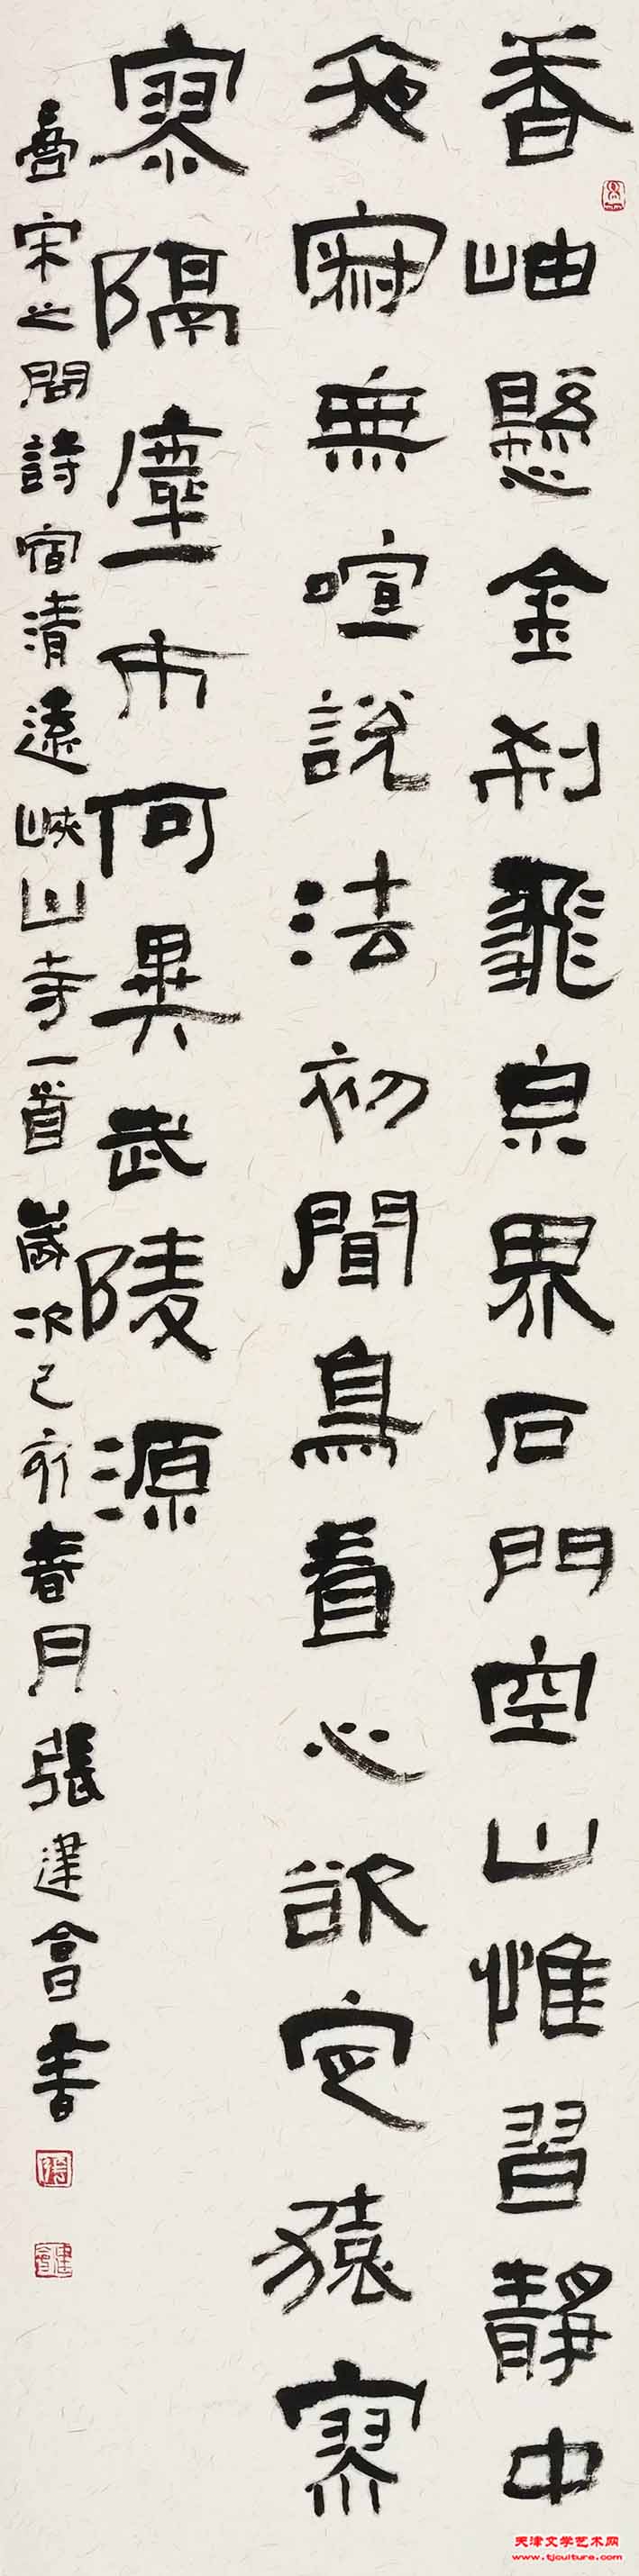 香岫懸金刹飛泉界石門空山惟習靜中
夜寂無喧說法初聞鳥看心欲定猿寥
寥隔塵市何異武陵源
書宋之問詩宿清遠峽山寺一首歲次己亥春月張建會書
張
建會
天津文学艺术网
www.tjculture.com